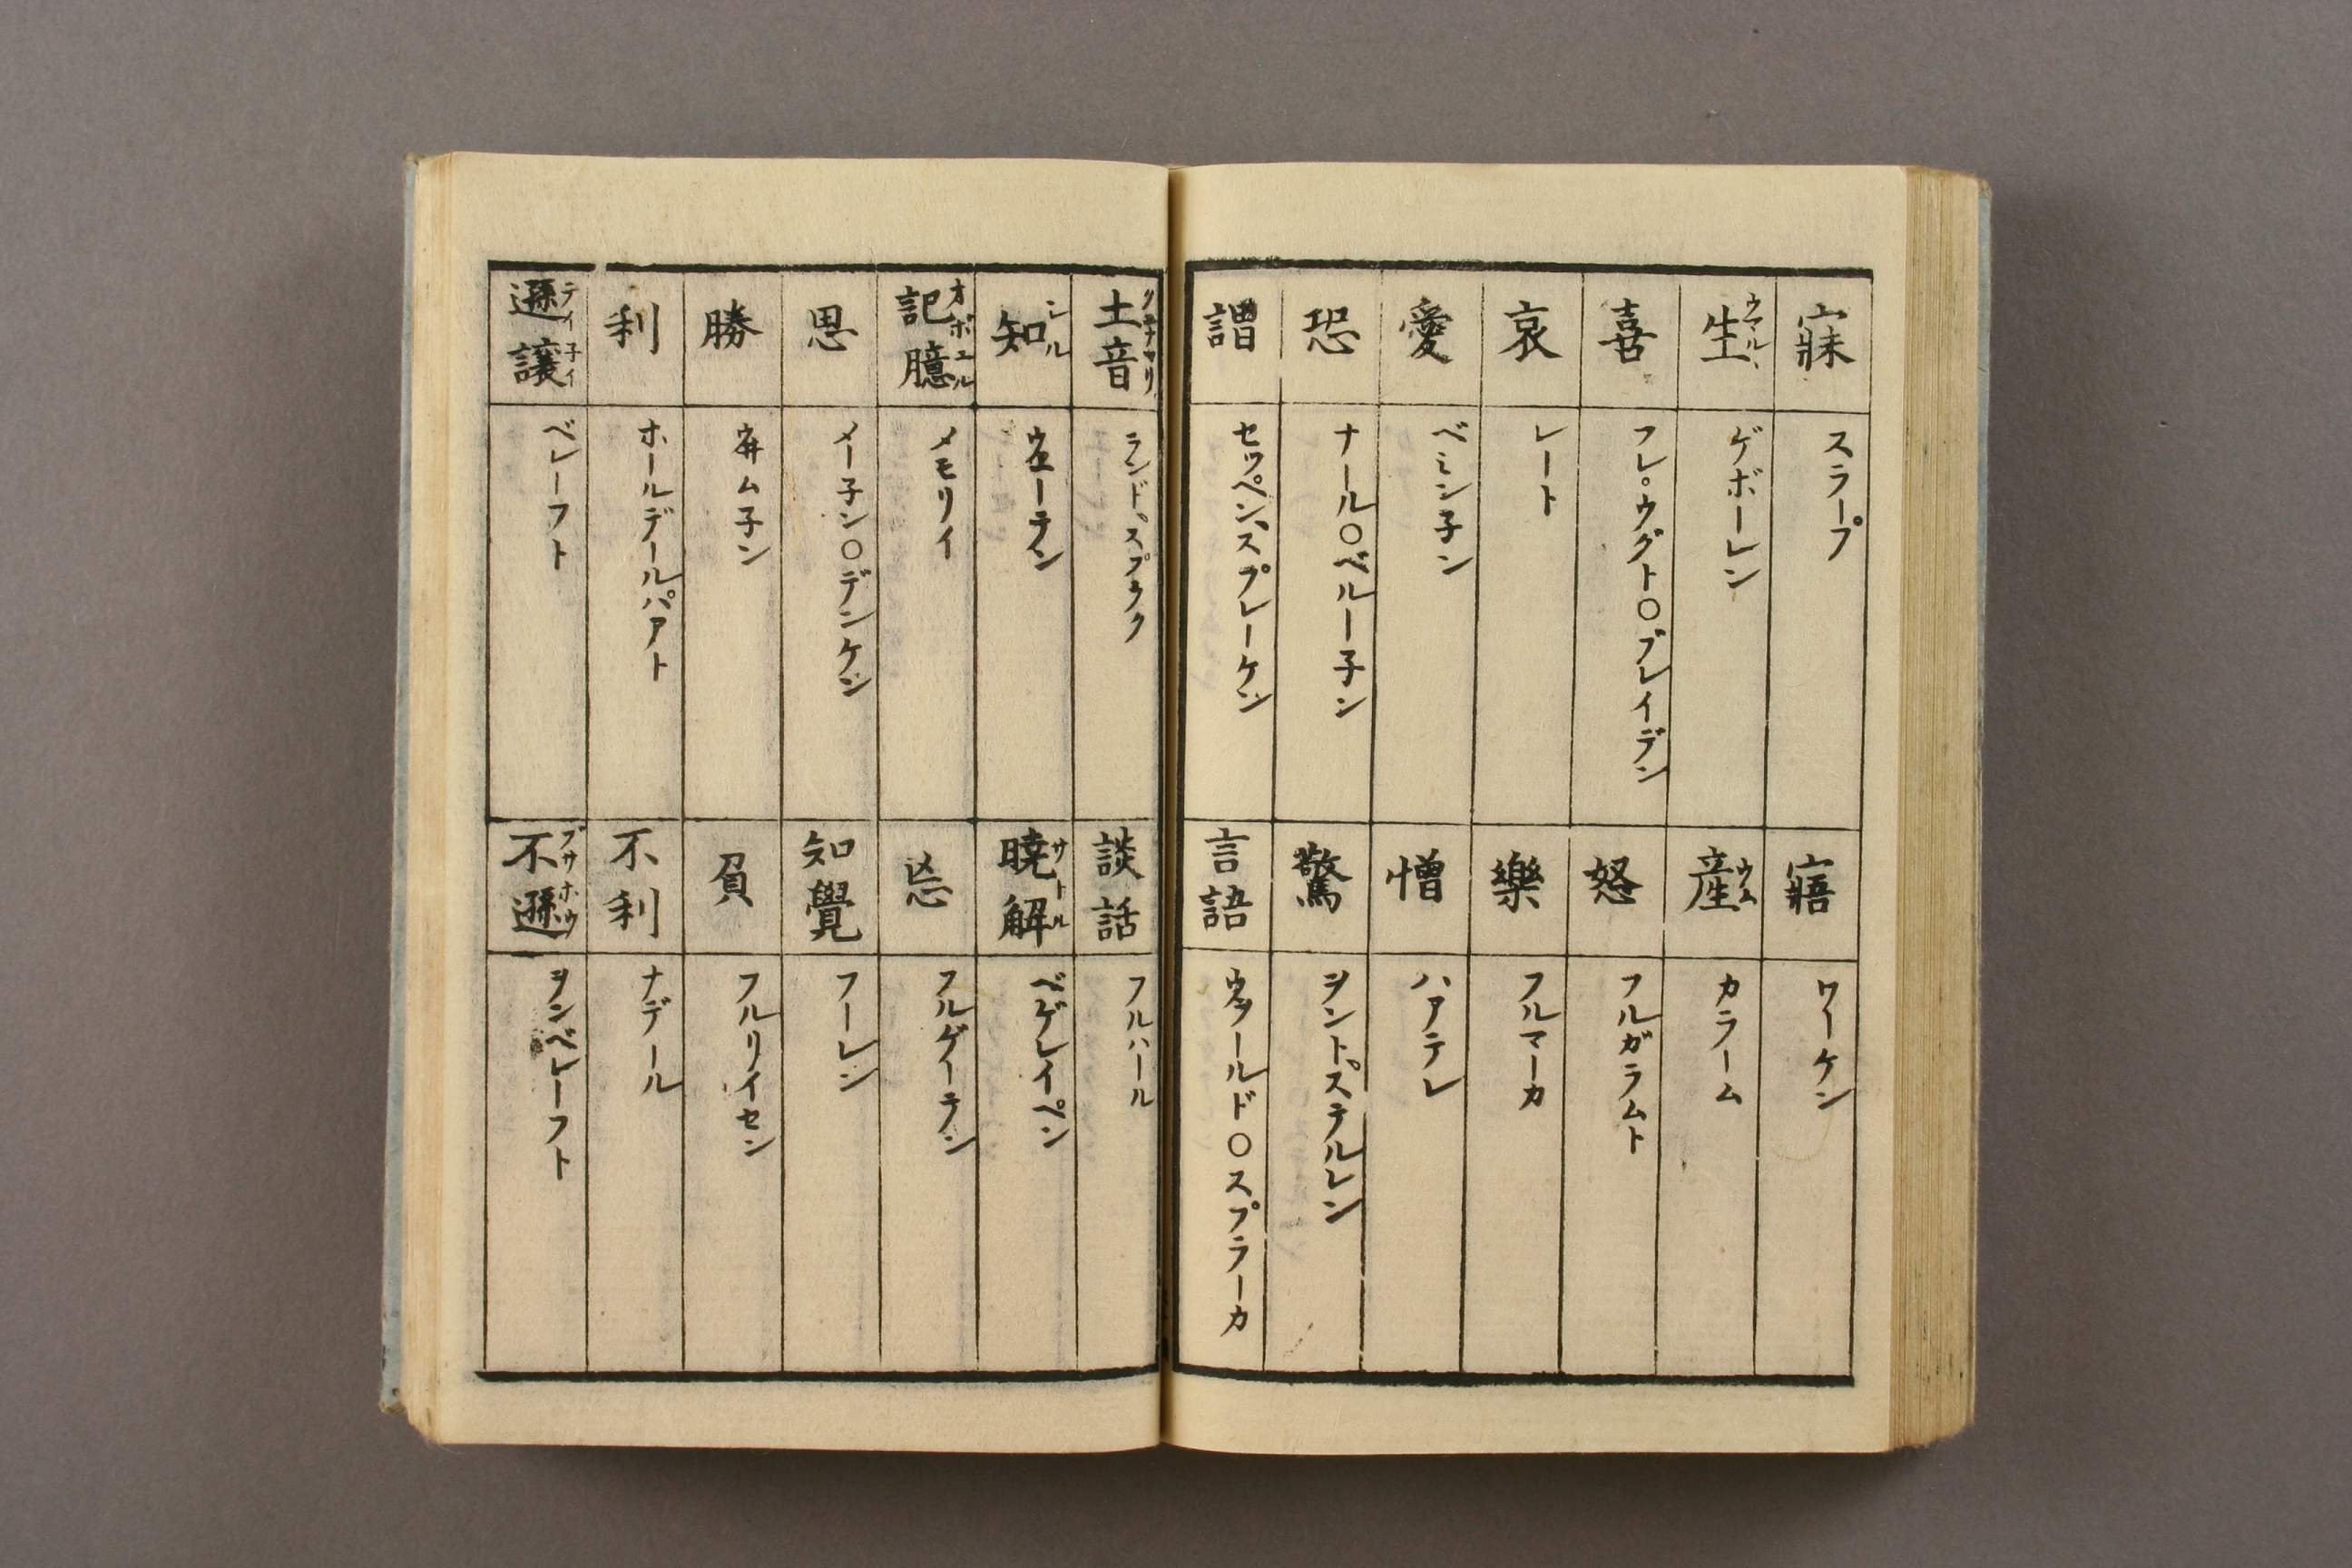 寐 スラープ
生 ウマルヽ ゲボーレン
喜 フレ。ウグト〇ブレイデン
哀 レート
愛 ベミン子ン
恐 ナール〇ベルー子ン
謂 セッペン、スプレーケン
寤 ワーケン
産 ウム カラーム
怒 フルガラムト
樂 フルマーカ
憎 ハアテレ
驚 ヲントステルレン
言語 ウヲールド〇スプラーカ
土音 クニナマリ ランド、スプラク
知 シル ウエーテン
記臆 オボエル メモリイ
思 メー子ン〇デンケン
勝 ウ井ム子ン
利 ホールデールパアト
遜讓 テイ子イ ベレーフト
談話 フルハール
曉解 サトル ベゲレイペン
忘 フルゲーテン
知覺 フーレン
負 フルリイセン
不利 ナデール
不遜 ブサホウ ヲンベレーフト